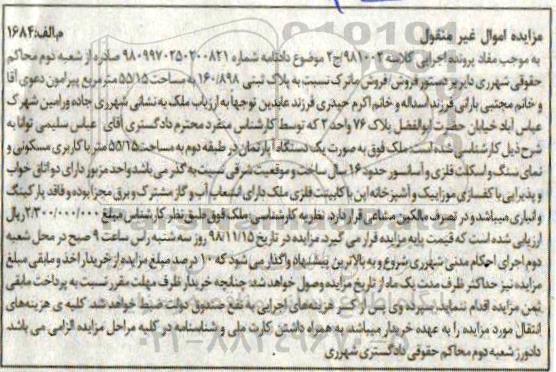 مزایده اموال غیر منقول م‌الف:۱۶۸۴
به موجب مفاد پرونده اجرایی کلاسه ۹۸۱۰۰۲/ج۲ موضوع دادنامه شماره ۹۸۰۹۹۷۰۲۵۰۲۰۰۸۲۱ صادره از شعبه دوم محاکم
حقوقی شهرری دایر بر دستور فروش/فروش ماترک نسبت به پلاک ثبتی ۱۶۰/۸۹۸ به مساحت ۵۵/۱۵ مترمربع پیرامون دعوی آقا
و خانم مجتبی بارانی فرزند اسداله و خانم اکرم حیدری فرزند عابدین توجهاً به ارزیاب ملک به نشانی شهرری جاده ورامین شهرک
عباس آباد خیابان حضرت ابوالفضل پلاک ۷۶ واحد ۲ که توسط کارشناس منفرد محترم دادگستری آقای عباس سلیمی توانا به
شرح ذیل کارشناسی شده است ملک فوق به صورت یک دستگاه آپارتمان در طبقه دوم به مساحت ۵۵/۱۵ متر با کاربری مسکونی و
نمای سنگ و اسکلت فلزی و آسانسور حدود ۱۶ سال ساخت و موقعیت شرقی نسبت به گذر می باشد واحد مزبور دارای دو اتاق خواب
و پذیرایی با کفسازی موزاییک و آشپزخانه اپن با کابینت فلزی ملک دارای انشعاب آب و گاز مشترک و برق مجزا بوده و فاقد پارکینگ
و انباری میباشد و در تصرف مالکین مشاعی قرار دارد. نظریه کارشناسی: ملک فوق طبق نظر کارشناس مبلغ ۲/۳۰۰/۰۰۰/۰۰۰ ریال
ارزیابی شده است که قیمت پایه مزایده قرار می گیرد. مزایده در تاریخ ۹۸/۱۱/۱۵ روز سه شنبه راس ساعت ۹ صبح در محل شعبه
دوم اجرای احکام مدنی شهرری شروع و به بالاترین پیشنهاد واگذار می شود که ۱۰ درصد مبلغ مزایده از خریدار اخذ و مابقی مبلغ
مزایده نیز حداکثر ظرف مدت یک ماه از تاریخ مزایده وصول خواهد شد چنانچه خریدار ظرف مهلت مقرر نسبت به پرداخت مابقی
ثمن مزایده اقدام ننماید سپرده وی پس از کسر هزینه‌های اجرایی به نفع صندوق دولت ضبط خواهد شد. کلیه ی هزینه‌های
انتقال مورد مزایده را به عهده خریدار میباشد. به همراه داشتن کارت ملی و شناسنامه در کلیه مراحل مزایده الزامی می باشد
دادورز شعبه دوم محاکم حقوقی دادگستری شهرری
۰۲۱-۸۸۳۴۹۶۷۰-۵